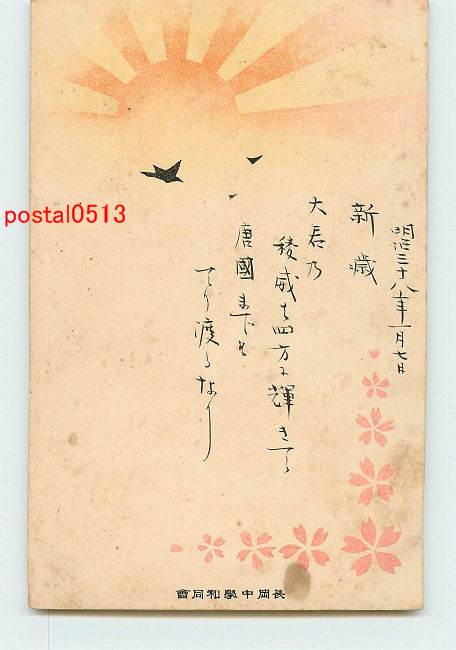 明治三十八年一月七日
新歳
大君乃
稜威は四方に輝きて
唐國までも
てり渡るなり
長岡中學和同會
postal0513